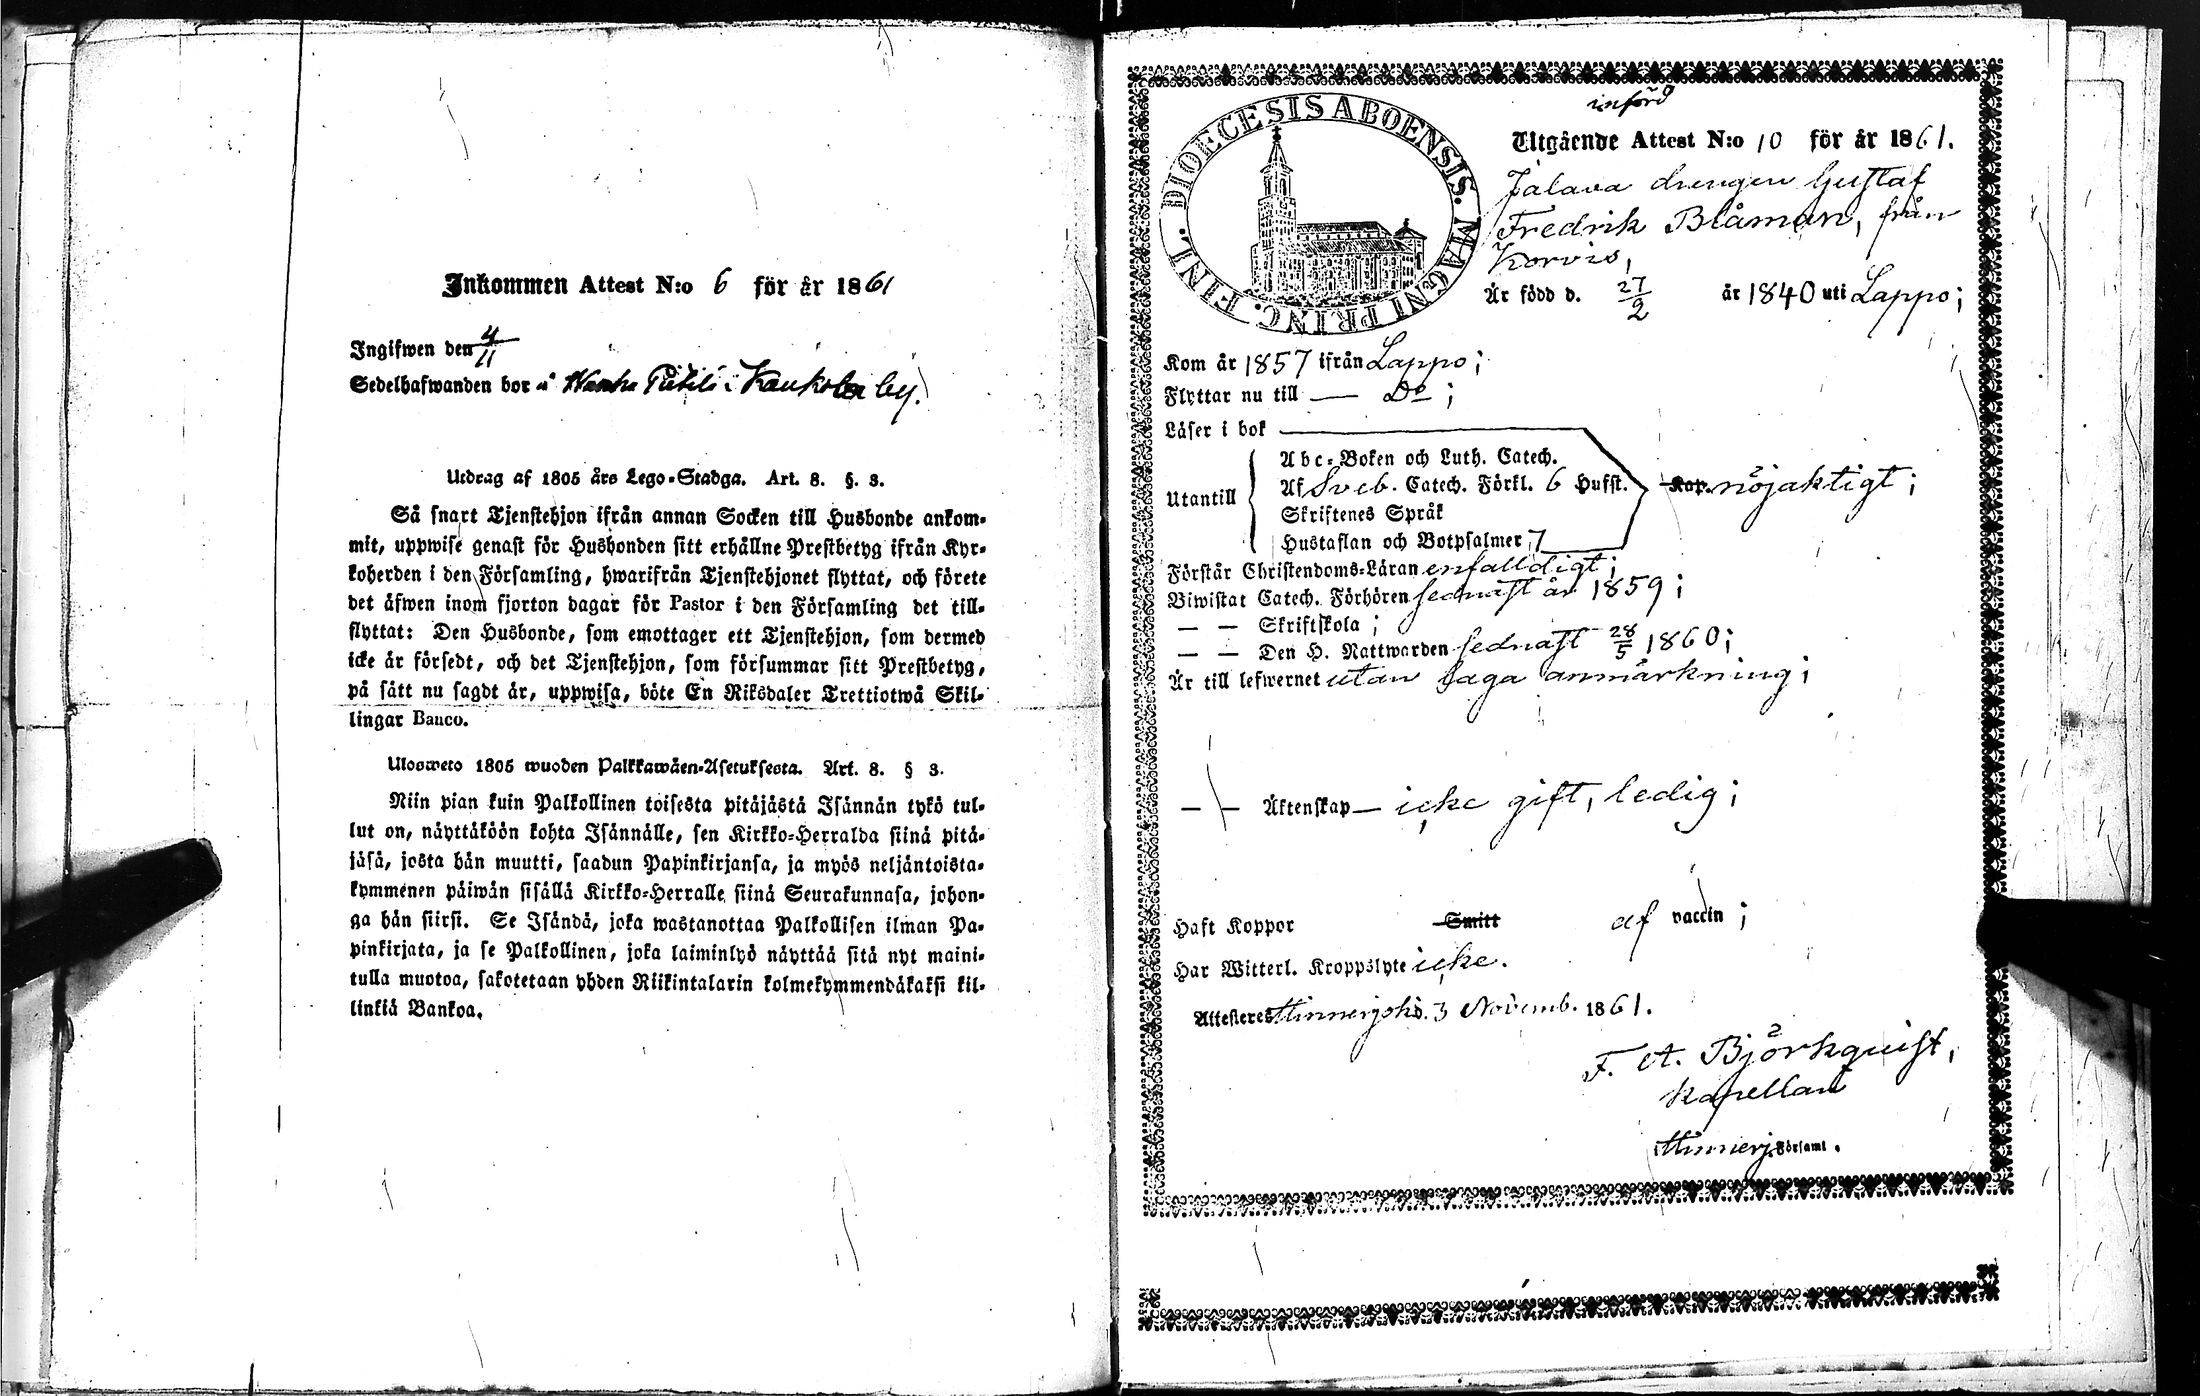 Inkommen Attest N:o 6 för år 1861
Ingifwen den 4/11
Sedelhafwanden bor å Wanha Pietilä i Kaukola by.
Utdrag af 1805 års Lego-Stadga. Art. 8. §. 3.
Så snart Tjenstehjon ifrån annan Socken till Husbonde ankom-
mit, uppwise genast för Husbonden sitt erhållne Prestbetyg ifrån Kyr-
koherden i den Församling, hwarifrån Tjenstehjonet flyttat, och förete
det äfwen inom fjorton dagar för Pastor i den Församling det till-
flyttat: Den Husbonde, som emottager ett Tjenstehjon, som dermed
icke är försedt, och det Tjenstehjon, som försummar sitt Prestbetyg,
på sätt nu sagdt är, uppwisa, böte En Riksdaler Trettiotwå Skil-
lingar Banco.
Ulosweto 1805 wuoden Palkkawäen-Asetuksesta. Art. 8. § 3.
Niin pian kuin Palkollinen toisesta pitäjästä Isännän tykö tul-
lut on, näyttäköön kohta Isännälle, sen Kirkko-Herralda siinä pitä-
jäsä, josta hän muutti, saadun Papinkirjansa, ja myös neljäntoista-
kymmenen päiwän sisällä Kirkko-Herralle siinä Seurakunnasa, johon-
ga hän siirsi. Se Isändä, joka wastanottaa Palkollisen ilman Pa-
pinkirjata, ja se Palkollinen, joka laiminlyö näyttää sitä nyt maini-
tulla muotoa, sakotetaan yhden Riikintalarin kolmekymmendäkaksi kil-
linkiä Bankoa.
DIOECESIS ABOENSIS. MAGNI PRINC. FINL.
införd
Utgående Attest N:o 10 för år 1861.
Jalava drengen Gustaf
Fredrik Blåman, från
Korvis,
Är född d. 27/2 år 1840 uti Lappo;
Kom år 1857 ifrån Lappo;
Flyttar nu till — Do;
Läser i bok
Utantill
Abc-Boken och Luth. Catech.
Af Sveb. Catech. Förkl. 6 Hufst. Kap. nöjaktigt;
Skriftenes Språk
Hustaflan och Botpsalmer 7
Förstår Christendoms-Läran enfalldigt;
Biwistat Catech. Förhören sednast år 1859;
— — Skriftskola;
— — Den H. Nattwarden sednast 28/5 1860;
Är till lefwernet utan laga anmärkning;
— — Äktenskap — icke gift, ledig;
Haft Koppor Smitt af vaccin;
Har Witterl. Kroppslyte icke.
Attesteres Hinnerjoki d. 3 Novemb. 1861.
F. A. Björkquist,
Kapellan
Hinnerj. Församl.